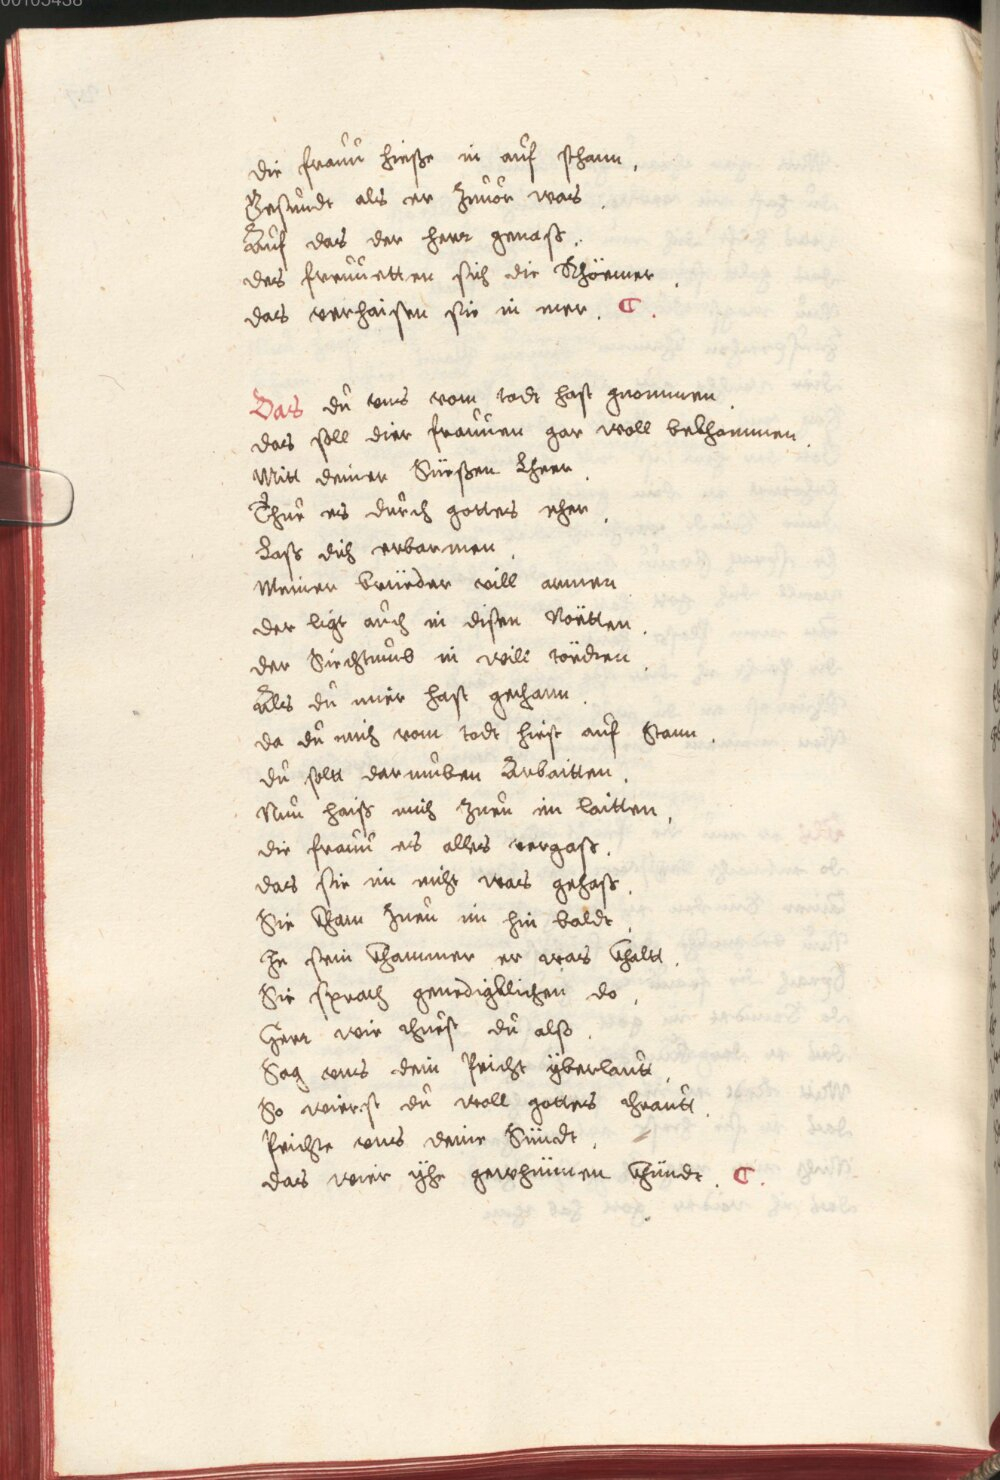 00105458
die frauu hieße in auf sthann.
Gesundt als er Zuuor was.
Auf das der herr genaß.
des freuuetten sich die Khöemer.
das verhaisen sie in mer. C.
Das du vns vom todt hast gnommen.
das soll dier frauuen gar woll bekhommen.
Mitt deiner Süeßen Lheer.
Thue es durch gottes eher.
Lass dich erbarmen.
Meiner brüeder vill armen
der ligt auch in disen Nöetten.
der Siechtumb in will töedten.
Als du mier hast gethann.
da du mich vom todt hiest auf Stann.
du solt darumben Arbaitten.
Nun haiß mich Zueu im laitten.
die frauu es alles vergaß.
das sie im nicht was gehaß.
Sie kham Zueu im hin baldt.
In sein khammer er was khaltt.
Sie sprach genedigklichen do.
Herr wie thuest du also.
Sag vns dein Peicht yberlautt.
So wierst du woll gottes thrautt.
Peichte vns deine Sündt.
das wier yhe gewhünnen khündt. C.